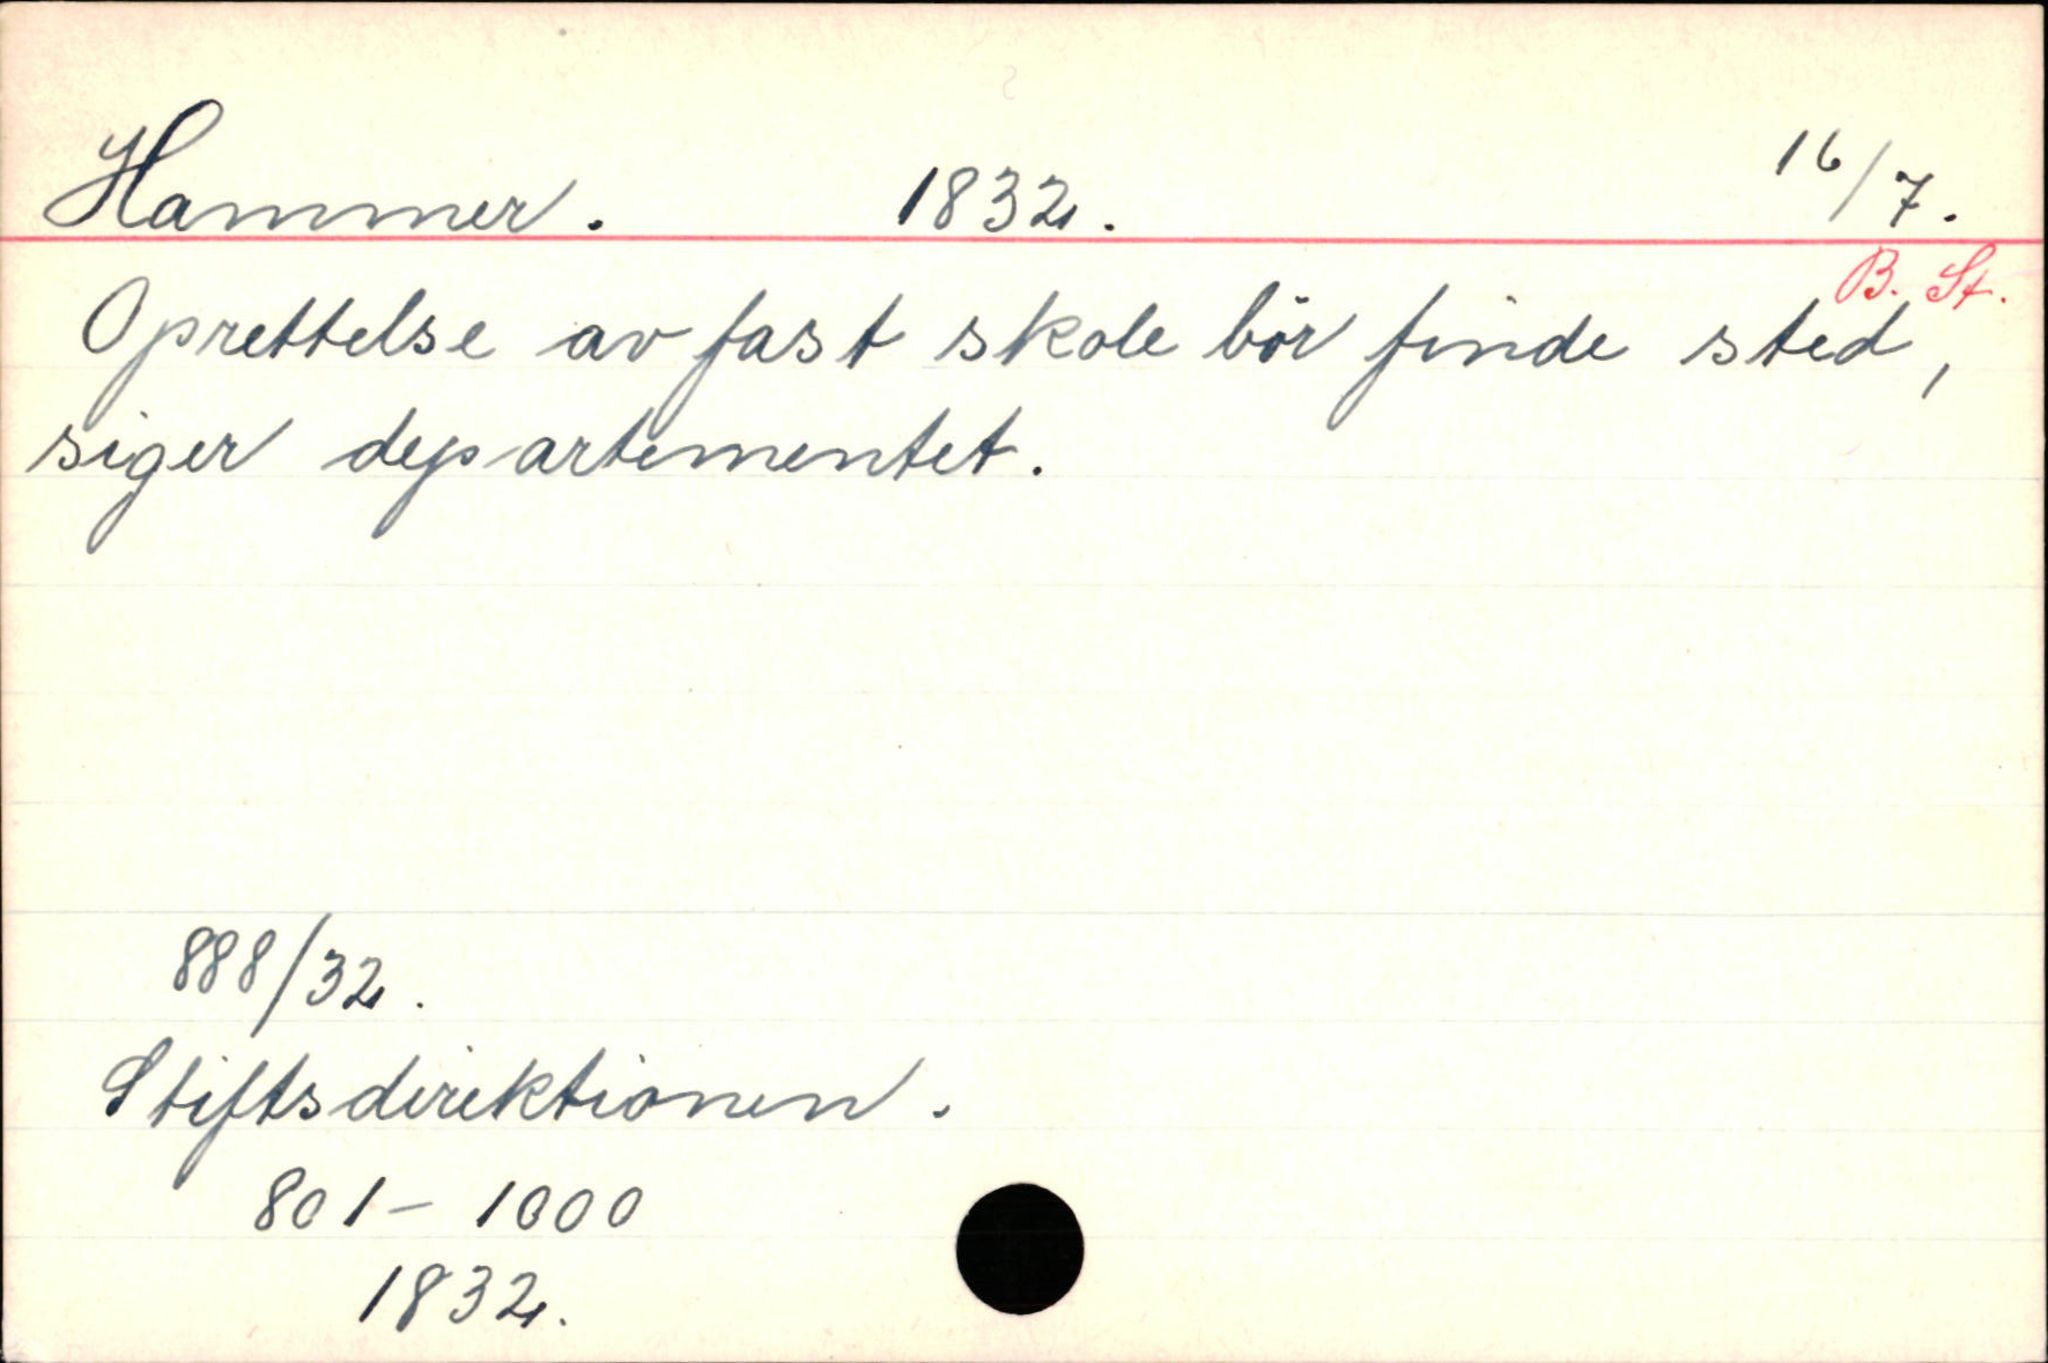 Hammer. 1832. 16/7.
B. St.
Oprettelse av fast skole bör finde sted,
siger departementet.
888/32.
Stiftsdirektionen.
801-1000
1832.